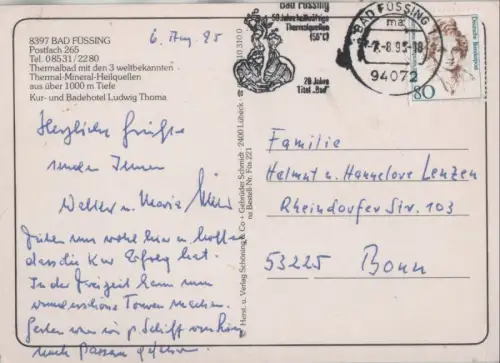 8397 BAD FÜSSING
Postfach 265
Tel. 08531/2280
Thermalbad mit den 3 weltbekannten
Thermal-Mineral-Heilquellen
aus über 1000 m Tiefe
Kur- und Badehotel Ludwig Thoma
6. Aug. 95
Herzliche Grüße
senden Ihnen
Walter u. Maria
Fühlen uns wohl hier u. hoffen
dass die Kur Erfolg hat.
In der Freizeit kann man
wunderschöne Touren machen.
Gestern waren wir p. Schiff von
nach Passau gefahren
Herst. u. Verlag Schöning & Co + Gebrüder Schmidt · 2400 Lübeck
Bestell-Nr. Füs 221
Bad Füssing
50 Jahre heilkräftige
Thermalquellen
(56°C)
20 Jahre
Titel „Bad"
BAD FÜSSING 1
ma
-7.-8.95-18
94072
Deutsche Bundespost
80
Familie
Helmut u. Hannelove Lenzen
Rheindorfer Str. 103
53225 Bonn